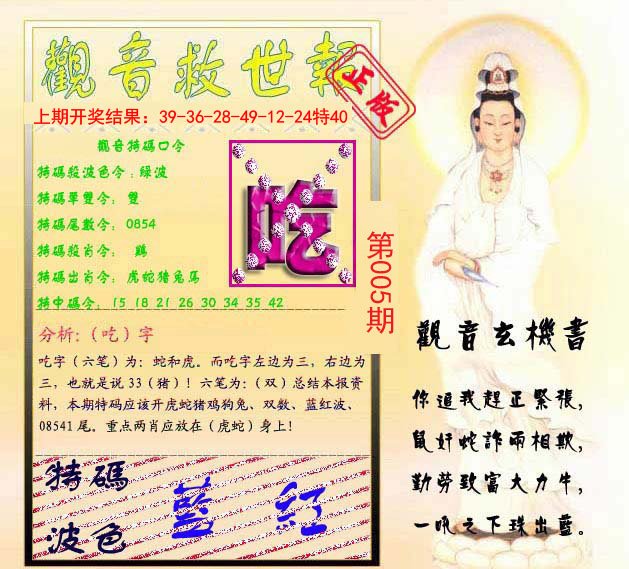 觀音救世報
正版
上期开奖结果：39-36-28-49-12-24特40
觀音特碼口令
特碼殺波色令：綠波
特碼單雙令：雙
特碼尾數令：0854
特碼殺肖令：鷄
特碼出肖令：虎蛇猪兔馬
特中碼令：15 18 21 26 30 34 35 42
吃
第005期
分析：（吃）字
吃字（六笔）为：蛇和虎。而吃字左边为三，右边为
三，也就是说 33（猪）！六笔为：（双）总结本报资
料，本期特码应该开虎蛇猪鸡狗兔、双数、蓝红波、
08541 尾。重点两肖应放在（虎蛇）身上！
特碼
波色
藍 紅
觀音玄機書
你追我趕正緊張，
鼠奸蛇詐兩相欺，
勤勞致富大力牛，
一吼之下珠出藍。